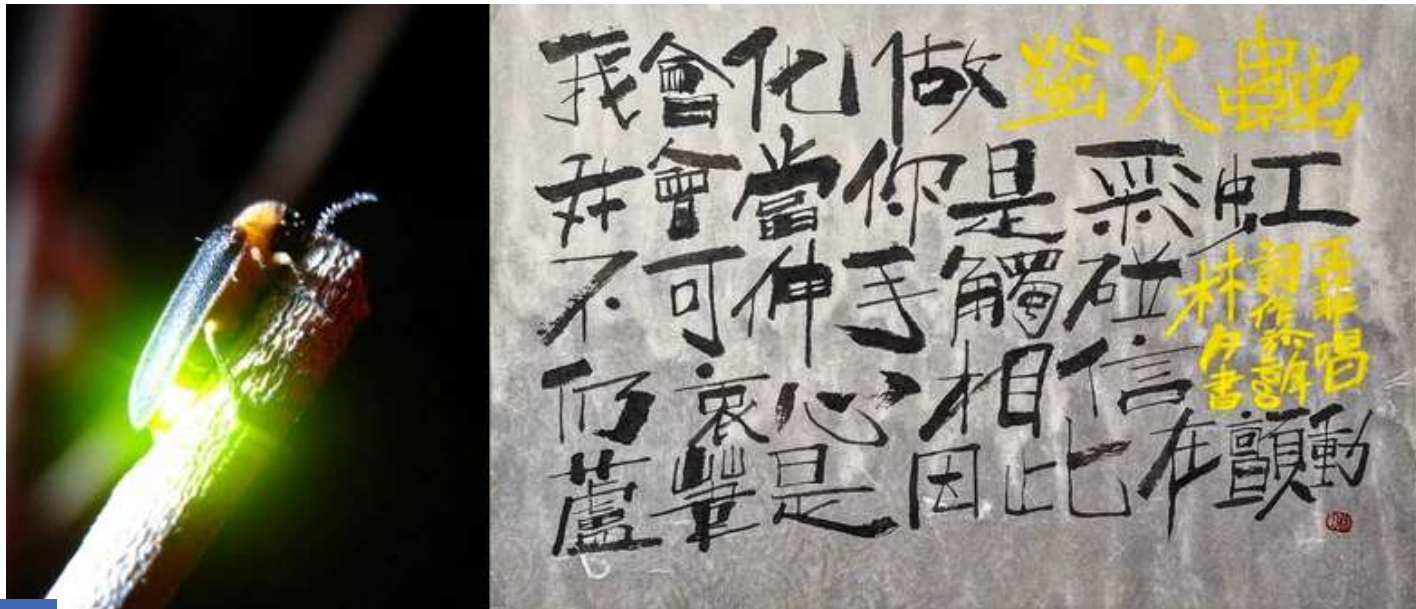 我會化做螢火蟲
我會當你是彩虹
不可伸手觸碰
仍衷心相信
蘆葦是因此在顫動
王菲唱
林夕書